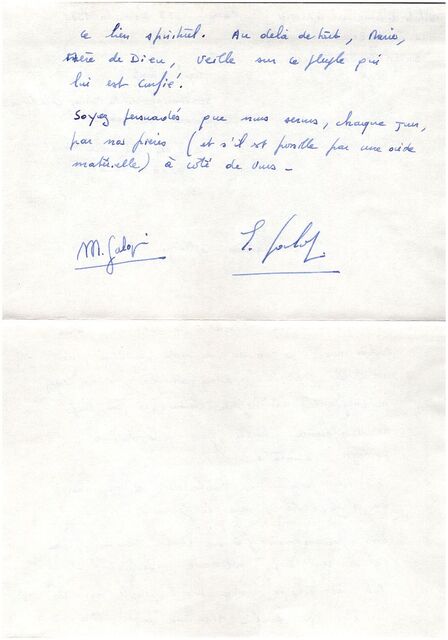 ce lien spirituel. Au delà de tout, Marie,
Mère de Dieu, veille sur ce peuple qui
lui est confié.
Soyez persuadés que nous serons, chaque jour,
par nos prières (et s'il est possible par une aide
matérielle) à côté de vous _
M. Galopi